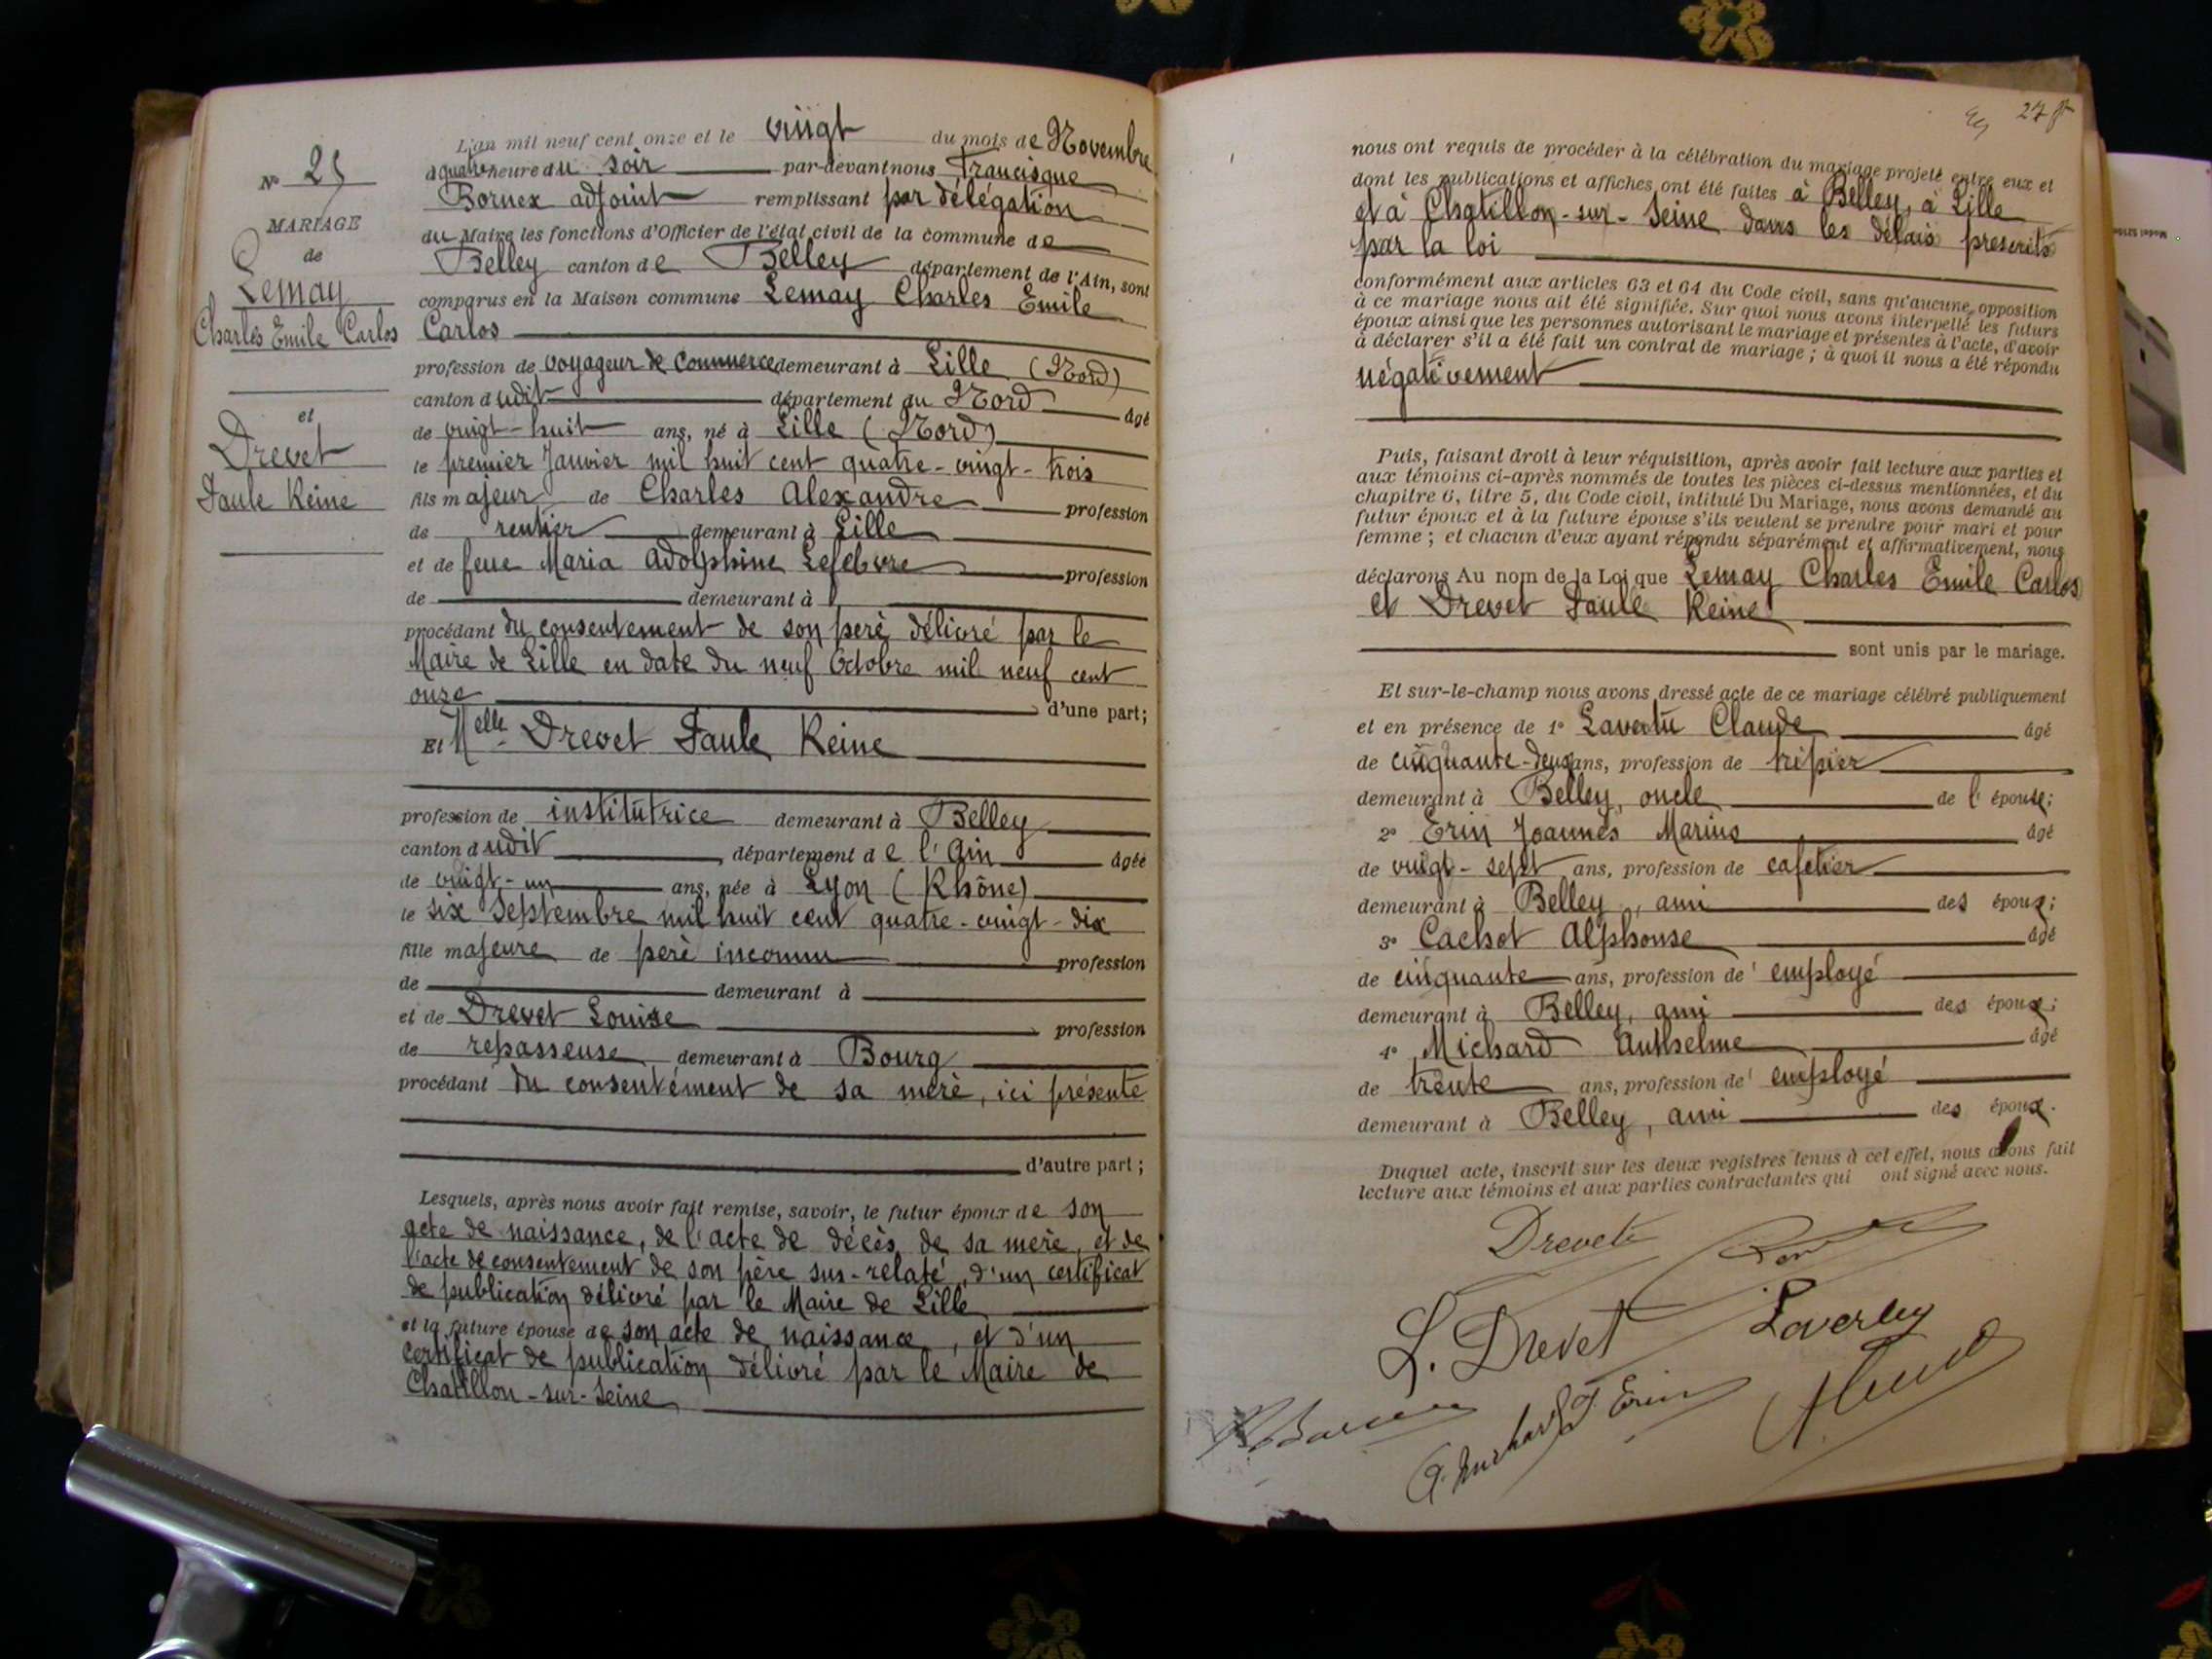 N° 25
MARIAGE
de
Lemay
Charles Emile Carlos
et
Drevet
Paule Reine
L'an mil neuf cent onze et le vingt du mois de Novembre
à quatre heure du soir par-devant nous Francisque
Bornex adjoint remplissant par délégation
du Maire les fonctions d'Officier de l'état civil de la commune de
Belley canton de Belley département de l'Ain, sont
comparus en la Maison commune Lemay Charles Emile
Carlos
profession de voyageur de Commerce demeurant à Lille (Nord)
canton dudit département du Nord âgé
de vingt-huit ans, né à Lille (Nord)
le premier Janvier mil huit cent quatre-vingt-trois
fils majeur de Charles Alexandre profession
de rentier demeurant à Lille
et de feue Maria Adolphine Lefebvre profession
de demeurant à
procédant du consentement de son père délivré par le
Maire de Lille en date du neuf Octobre mil neuf cent
onze d'une part;
Et Melle Drevet Paule Reine
profession de institutrice demeurant à Belley
canton dudit, département de l'Ain âgée
de vingt-un ans, née à Lyon (Rhône)
le six Septembre mil huit cent quatre-vingt-dix
fille majeure de père inconnu profession
de demeurant à
et de Drevet Louise profession
de repasseuse demeurant à Bourg
procédant du consentement de sa mère, ici présente
d'autre part;
Lesquels, après nous avoir fait remise, savoir, le futur époux de son
acte de naissance, de l'acte de décès de sa mère, et de
l'acte de consentement de son père sus-relaté, d'un certificat
de publication délivré par le Maire de Lille
et la future épouse de son acte de naissance, et d'un
certificat de publication délivré par le Maire de
Chatillon-sur-Seine
27
nous ont requis de procéder à la célébration du mariage projeté entre eux et
dont les publications et affiches ont été faites à Belley, à Lille
et à Chatillon-sur-Seine dans les délais prescrits
par la loi
conformément aux articles 63 et 64 du Code civil, sans qu'aucune opposition
à ce mariage nous ait été signifiée. Sur quoi nous avons interpellé les futurs
époux ainsi que les personnes autorisant le mariage et présentes à l'acte, d'avoir
à déclarer s'il a été fait un contrat de mariage; à quoi il nous a été répondu
négativement
Puis, faisant droit à leur réquisition, après avoir fait lecture aux parties et
aux témoins ci-après nommés de toutes les pièces ci-dessus mentionnées, et du
chapitre 6, titre 5, du Code civil, intitulé Du Mariage, nous avons demandé au
futur époux et à la future épouse s'ils veulent se prendre pour mari et pour
femme; et chacun d'eux ayant répondu séparément et affirmativement, nous
déclarons Au nom de la Loi que Lemay Charles Emile Carlos
et Drevet Paule Reine
sont unis par le mariage.
Et sur-le-champ nous avons dressé acte de ce mariage célébré publiquement
et en présence de 1° Claude âgé
de cinquante-deux ans, profession de tripier
demeurant à Belley, oncle de l'épouse;
2° Erin Joannès Marius âgé
de vingt-sept ans, profession de cafetier
demeurant à Belley, ami des époux;
3° Cachot Alphonse âgé
de cinquante ans, profession de employé
demeurant à Belley, ami des époux;
4° Michard Anthelme âgé
de trente ans, profession de employé
demeurant à Belley, ami des époux.
Duquel acte, inscrit sur les deux registres tenus à cet effet, nous avons fait
lecture aux témoins et aux parties contractantes qui ont signé avec nous.
Drevet
L. Drevet
J. Erin